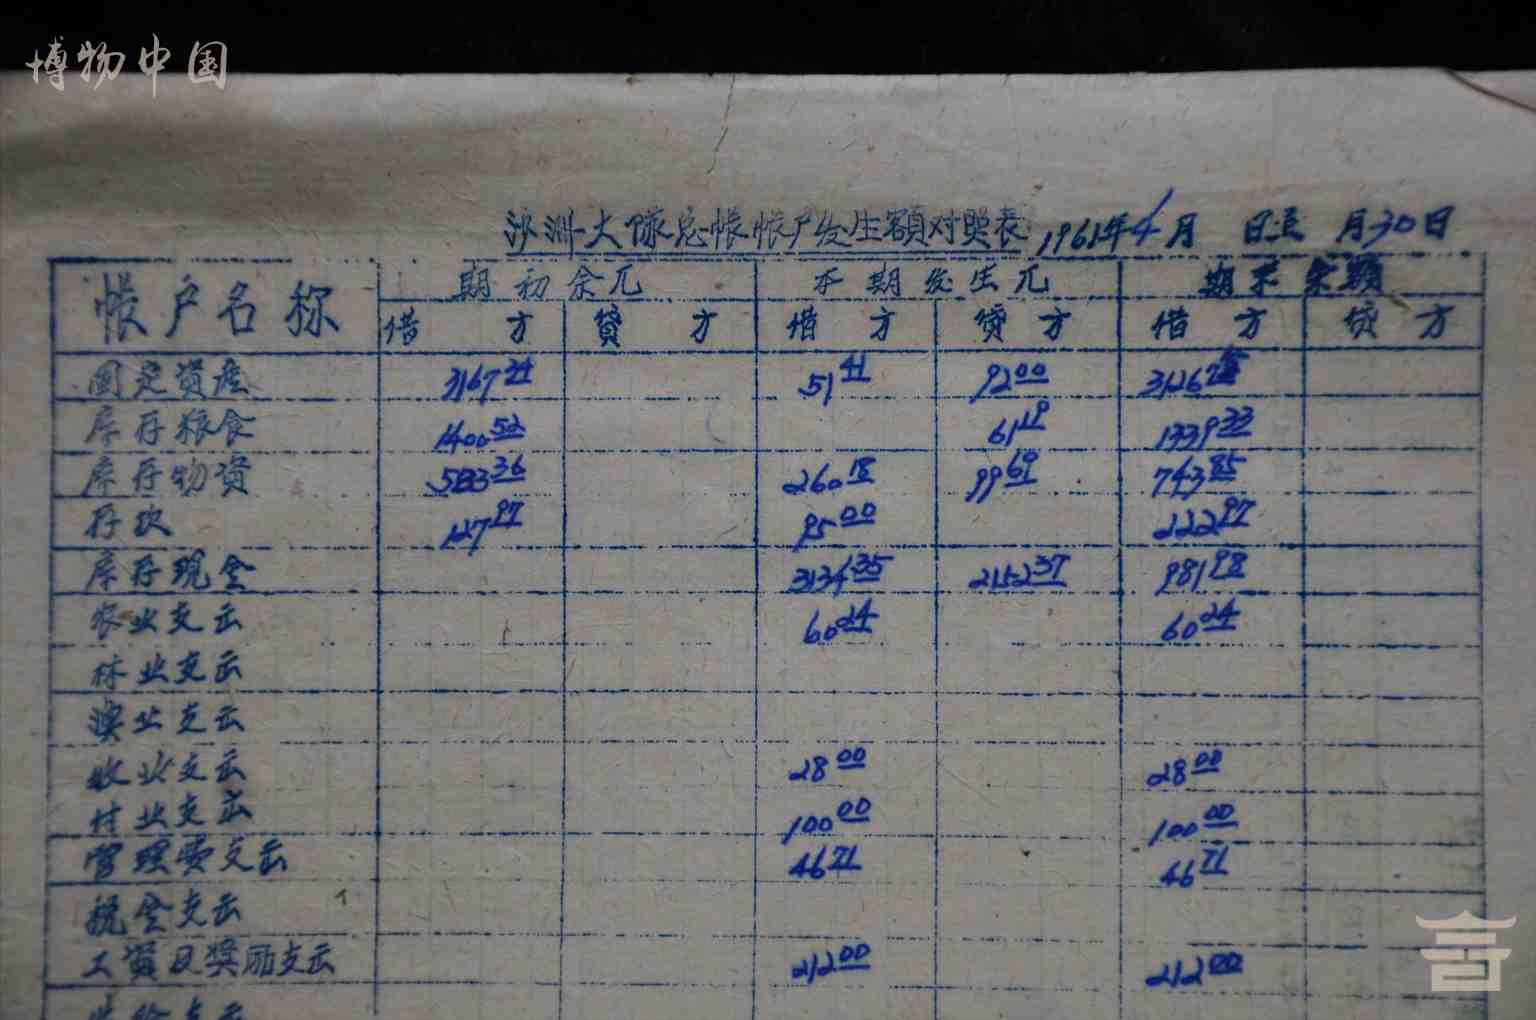 博物中国
沙洲大队总帐帐户发生额对照表 1961年4月 日至 月30日
帐户名称 期初余兀 本期发生兀 期末余额
借方 貸方 借方 贷方 借方 贷方
固定资产 3167 51.41 92.00 3126
库存粮食 1400.52 61.19 1339.33
库存物资 583.36 260.18 99.69 743.85
存款 127.97 95.00 222.97
库存现金 3134.35 2152.37 981.98
农业支出 60.24 60.24
林业支出
渔业支出
牧业支出 28.00 28.00
付业支出 100.00 100.00
管理费支出 46.71 46.71
税金支出
工資及奖励支出 212.00 212.00